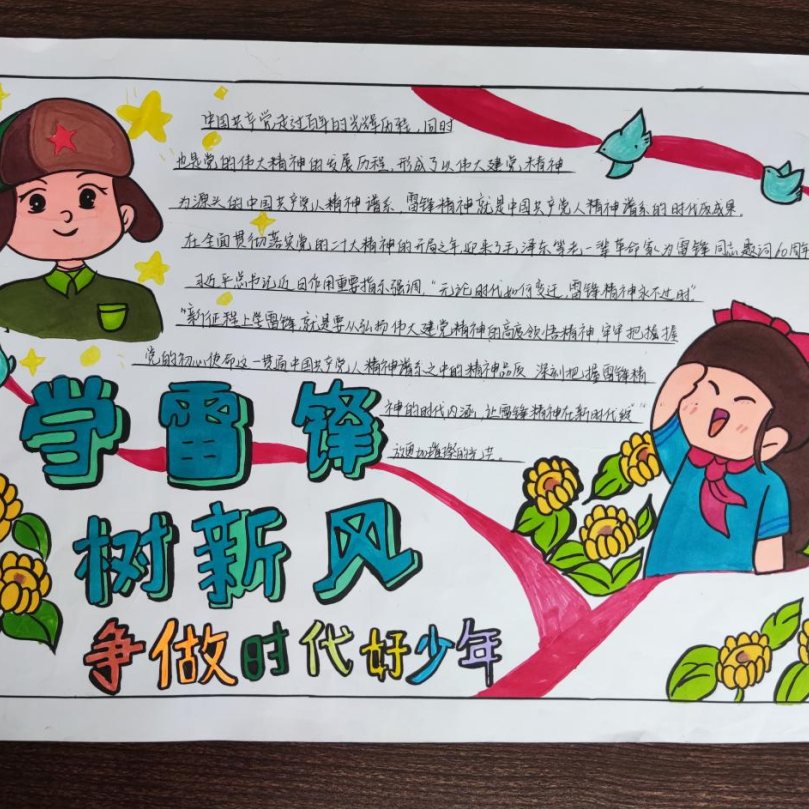 中国共产党走过百年的光辉历程，同时
也是党的伟大精神的发展历程，形成了以伟大建党精神
为源头的中国共产党人精神谱系，雷锋精神就是中国共产党人精神谱系的时代成果，
在全面贯彻落实党的二十大精神的开局之年，迎来了毛泽东等老一辈革命家为雷锋同志题词60周年
习近平总书记近日作用重要指示强调，“无论时代如何变迁，雷锋精神永不过时”
“新征程上学雷锋，就是要从弘扬伟大建党精神的高度领悟精神，牢牢把握握
党的初心使命这一贯通中国共产党人精神谱系之中的精神品质，深刻把握雷锋精
神的时代内涵，让雷锋精神在新时代绽
放更加璀璨的光芒。
学雷锋
树新风
争做时代好少年